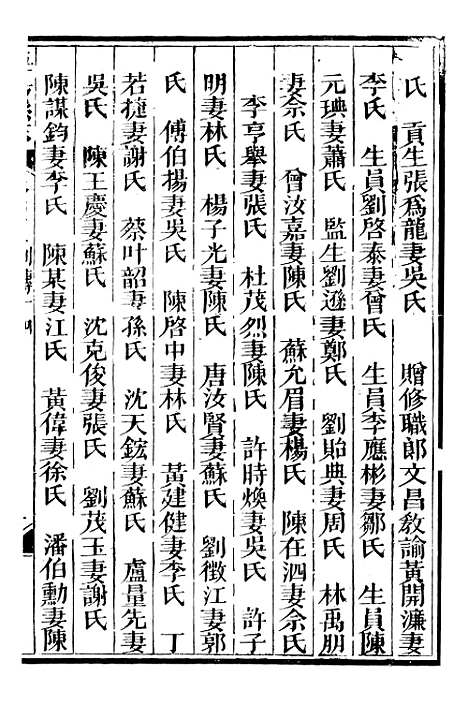 氏　貢生張爲龍妻吳氏　贈修職郎文昌敎諭黃開濂妻
李氏　生員劉啓泰妻曾氏　生員李應彬妻鄒氏　生員陳
元琠妻蕭氏　監生劉遜妻鄭氏　劉貽典妻周氏　林禹朋
妻佘氏　曾汝嘉妻陳氏　蘇允眉妻楊氏　陳在泗妻佘氏
李亨舉妻張氏　杜茂烈妻陳氏　許時煥妻吳氏　許子
明妻林氏　楊子光妻陳氏　唐汝賢妻蘇氏　劉徵江妻郭
氏　傅伯揚妻吳氏　陳啓中妻林氏　黃建健妻李氏　丁
若㨗妻謝氏　蔡叶韶妻孫氏　沈天鋐妻蘇氏　盧量先妻
吳氏　陳王慶妻蘇氏　沈克俊妻張氏　劉茂玉妻謝氏
陳謀鈞妻李氏　陳某妻江氏　黃偉妻徐氏　潘伯勳妻陳